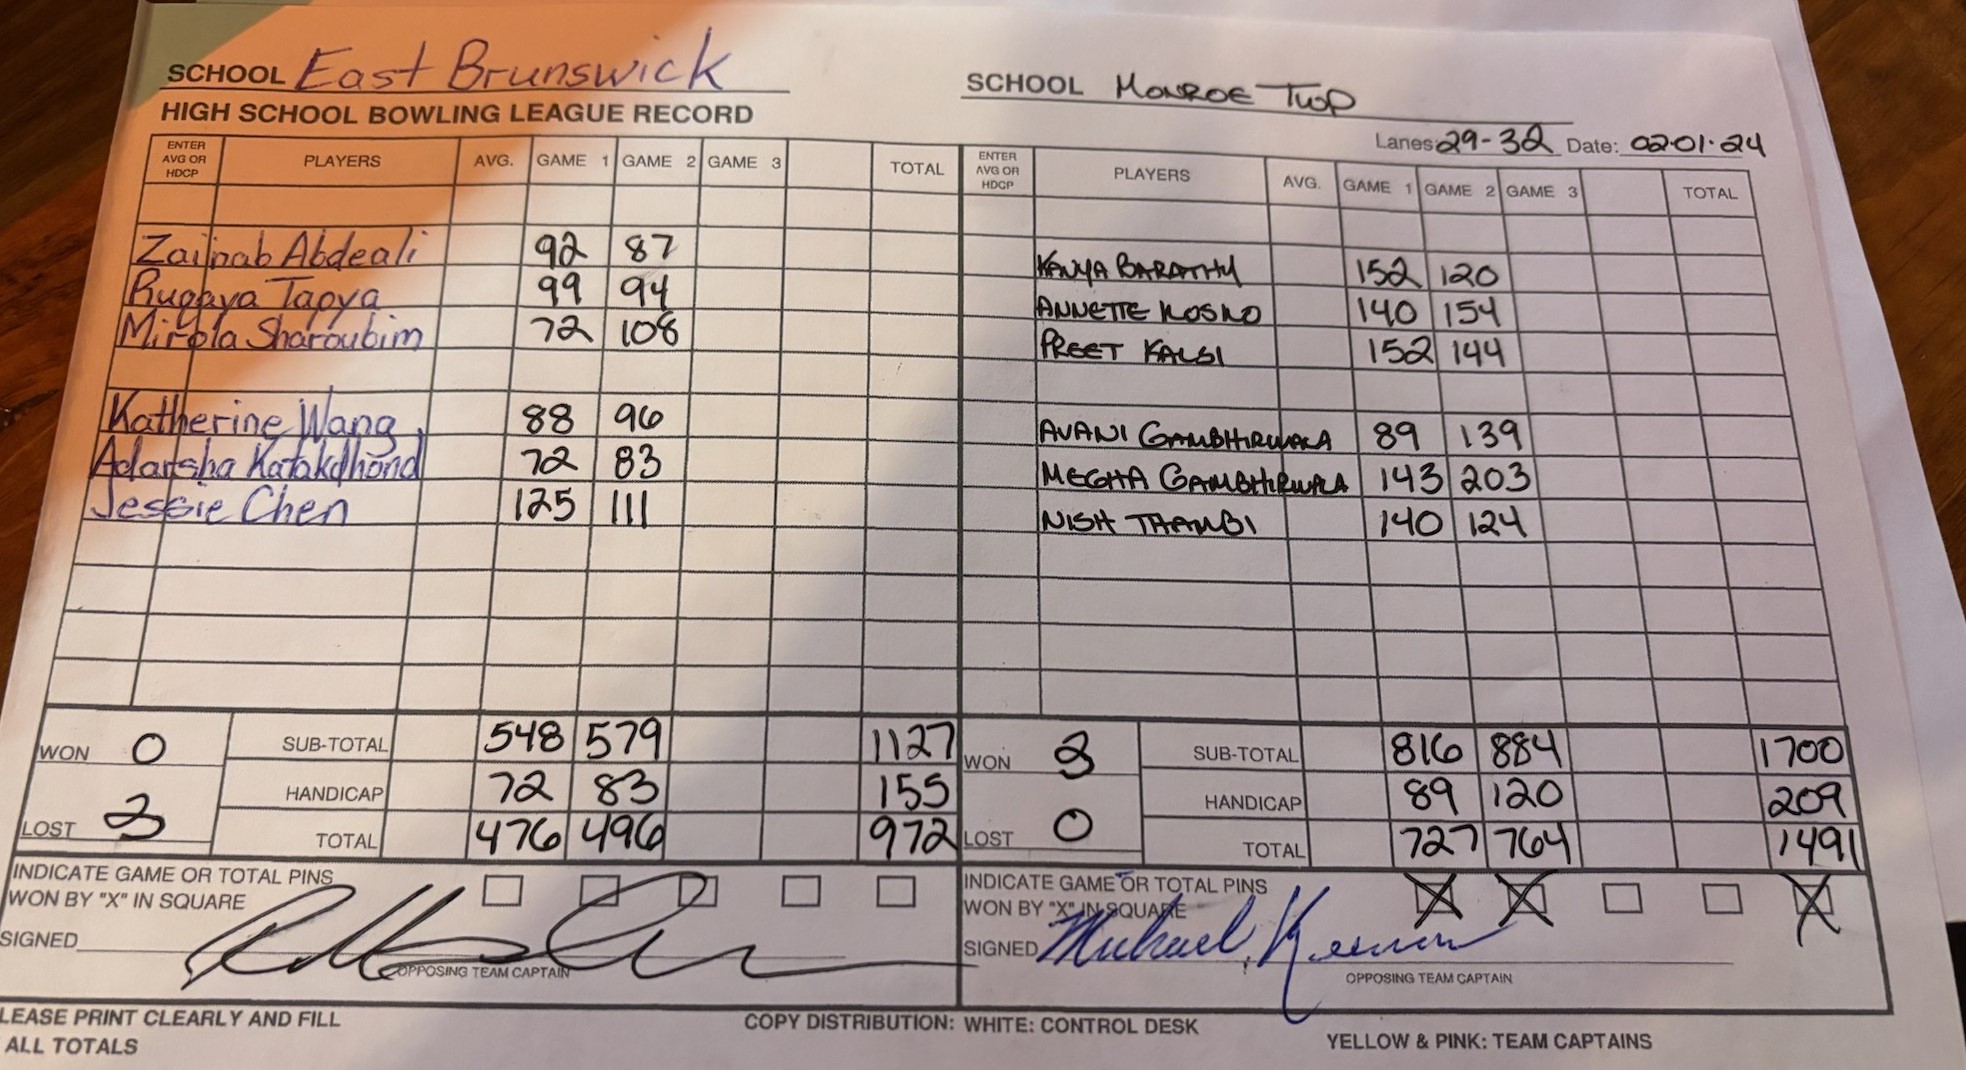 SCHOOL East Brunswick
SCHOOL MONROE TWP
HIGH SCHOOL BOWLING LEAGUE RECORD
Lanes: 29-32 Date: 02·01·24
ENTER AVG OR HDCP PLAYERS AVG. GAME 1 GAME 2 GAME 3 TOTAL ENTER AVG OR HDCP PLAYERS AVG. GAME 1 GAME 2 GAME 3 TOTAL
Zainab Abdeali 92 87 KANYA BARATHY 152 120
Ruqayya Tapya 99 94 ANNETTE KOSKO 140 154
Mirola Sharoubim 72 108 PREET KALSI 152 144
Katherine Wang 88 96 AVANI GAMBHIRWALA 89 139
Adarsha Katakdhond 72 83 MEGHA GAMBHIRWALA 143 203
Jessie Chen 125 111 NISH THAMBI 140 124
WON 0 SUB-TOTAL 548 579 1127 WON 3 SUB-TOTAL 816 884 1700
HANDICAP 72 83 155 HANDICAP 89 120 209
LOST 3 TOTAL 476 496 972 LOST 0 TOTAL 727 764 1491
INDICATE GAME OR TOTAL PINS INDICATE GAME OR TOTAL PINS
WON BY "X" IN SQUARE WON BY "X" IN SQUARE X X X
SIGNED SIGNED Michael
OPPOSING TEAM CAPTAIN OPPOSING TEAM CAPTAIN
LEASE PRINT CLEARLY AND FILL COPY DISTRIBUTION: WHITE: CONTROL DESK YELLOW & PINK: TEAM CAPTAINS
ALL TOTALS